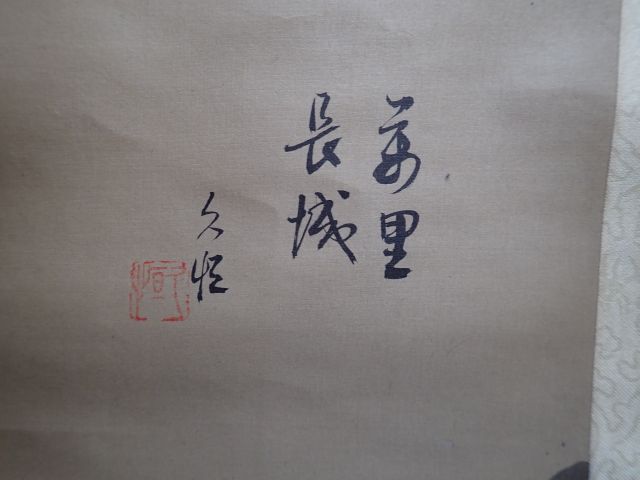 萬里
長城
久恒